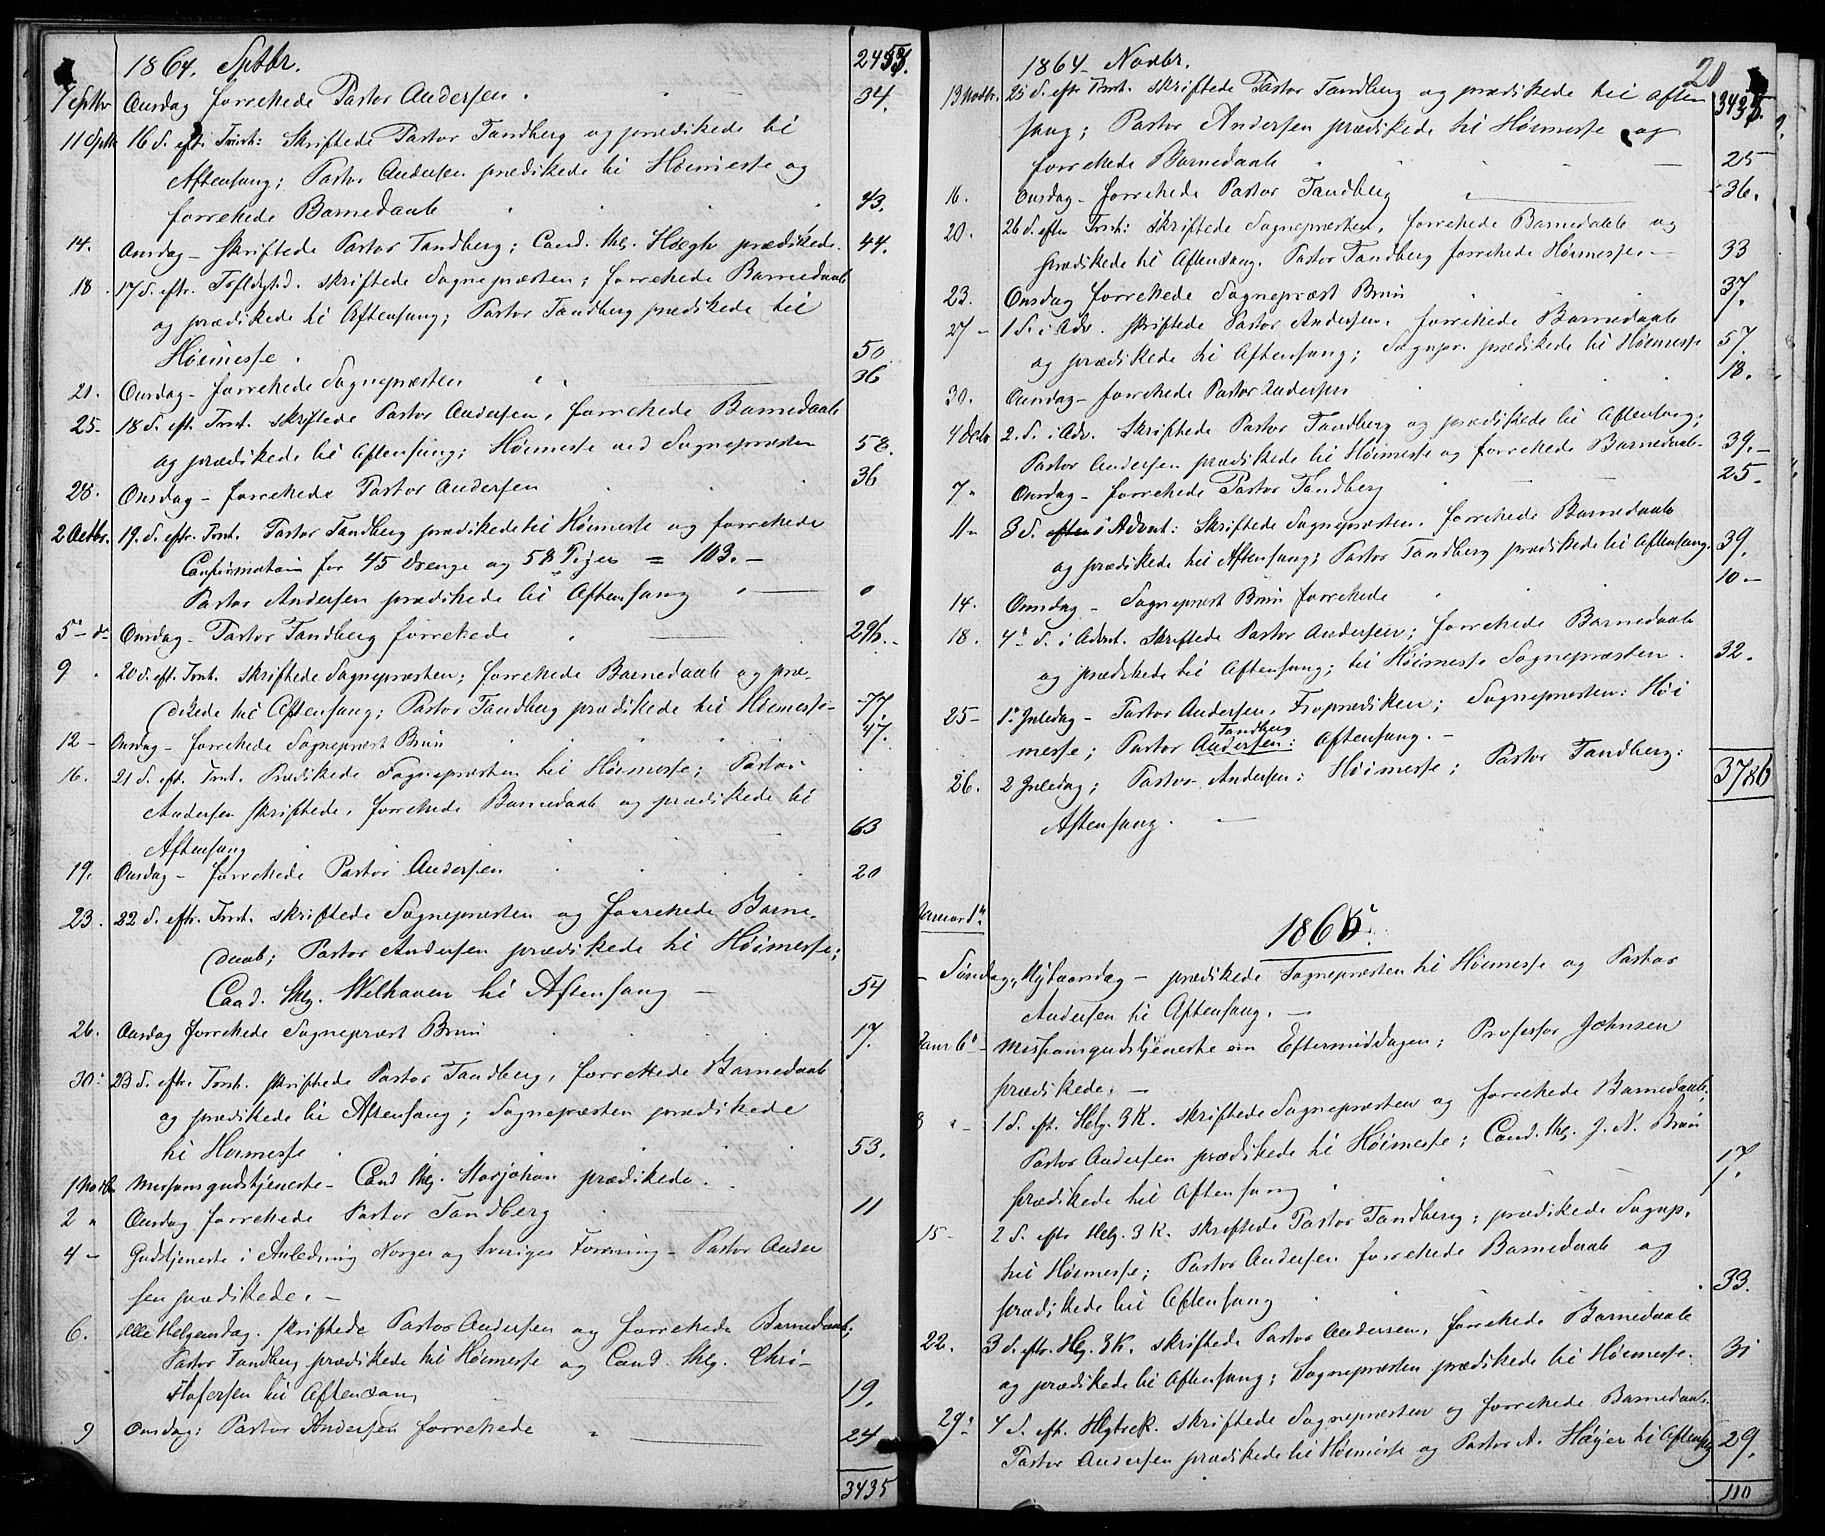 1864. Septbr. 2453.
7 Septbr Onsdag forrettede Pastor Andersen. 34.
11 Septb 16 S. eft. Trinit: Skriftede Pastor Tandberg og prædikede til
Aftensang; Pastor Andersen prædikede til Höimesse og
forrettede Barnedaab 43.
14. Onsdag – skriftede Pastor Tandberg; Cand. thl. Høegh prædikede. 44.
18. 17 S. eftr. Trefldghd. skriftede Sognepræsten; forrettede Barnedaab
og prædikede til Aftensang; Pastor Tandberg prædikede til
Höimesse. 50
21. Onsdag – forrettede Sognepræsten 36
25– 18 S. eft. Trnt. skriftede Pastor Andersen, forrettede Barnedaab
og prædikede til Aftensang; Höimesse ved Sognepræsten 58.
28. Onsdag – forrettede Pastor Andersen 36
2 Octbr. 19. S. eftr. Trnt. Pastor Tandberg prædikede til Höimesse og forrettede
Confirmation for 45 Drenge og 58 Piger = 103. –
Pastor Andersen prædikede til Aftensang 0
5– d– Onsdag – Pastor Tandberg forrettede 296.
9 20 S. eft. Trnt. skriftede Sognepræsten; forrettede Barnedaab og præ-
dikede til Aftensang; Pastor Tandberg prædikede til Höimesse– 77
12 – Onsdag – forrettede Sognepræst Brun 47.
16. 21 S. eft. Trnt. Prædikede Sognepræsten til Höimesse; Pastor
Andersen skriftede, forrettede Barnedaab og prædikede til
Aftensang 63
19. Onsdag – forrettede Pastor Andersen 20
23. 22 S. eftr. Trnt. skriftede Sognepræsten og forrettede Barne-
daab; Pastor Andersen prædikede til Höimesse;
Cand. thlg. Welhaven til Aftensang – 54
26. Onsdag forrettede Sognepræst Brun 17.
30. 23 S. eftr. Trnt. skriftede Pastor Tandberg, forrettede Barnedaab
og prædikede til Aftensang; Sognepræsten prædikede
til Höimesse 53.
1 Novbr Missionsgudstjeneste – Cand. thlg. Storjohan prædikede.
2 " Onsdag forrettede Pastor Tandberg 11
4 – Gudstjeneste i Anledning Norges og Sveriges Forening – Pastor Ander
sen prædikede. –
6. Alle Helgensdag. skriftede Pastor Andersen og forrettede Barnedaab;
Pastor Tandberg prædikede til Höimesse og Cand. thlg. Chri-
stofersen til Aftensang 19.
9 Onsdag: Pastor Andersen forrettede 24
3435
1864 – Novbr. 20
13 Novbr. 25 S. eftr Trnt. skriftede Pastor Tandberg og prædikede til Aften 3435.
sang; Pastor Andersen prædikede til Höimesse og
forrettede Barnedaab 25
16. Onsdag – forrettede Pastor Tandberg 36.
20. 26 S. efter Trnt: skriftede Sognepræsten, forrettede Barnedaab og
prædikede til Aftensang. Pastor Tandberg forrettede Höimesse. – 33
23. Onsdag forrettede Sognepræst Brun 37.
27 – 1 S. i Adv. skriftede Pastor Andersen, forrettede Barnedaab
og prædikede til Aftensang; Sognepr. prædikede til Höimesse 57.
30. Onsdag – forrettede Pastor Andersen 18.
4 Decbr 2. S. i Adv. Skriftede Pastor Tandberg og prædikede til Aftensang;
Pastor Andersen prædikede til Höimesse og forrettede Barnedaab– 39. –
7 " Onsdag – forrettede Pastor Tandberg 25.
11 " 3 S. efter i Advnt: Skriftede Sognepræsten, forrettede Barnedaab
og prædikede til Aftensang; Pastor Tandberg prædikede til Aftensang. 39.
14. Onsdag – Sognepræst Brun forrettede 10 –
18. 4de S. i Advnt. Skriftede Pastor Andersen; forrettede Barnedaab
og prædikede til Aftensang; til Höimesse Sognepræsten. 32.
25 – 1ste Juledag – Pastor Andersen, Froprædiken; Sognepræsten: Höi
messe; Pastor Andersen: Tandberg Aftensang. –
26. 2 Juledag; Pastor Andersen: Höimesse; Pastor Tandberg: 3786
Aftensang. –
1865.
Januar 1ste
– Söndag, Nytaarsdag – prædikede Sognepræsten til Höimesse og Pastor
Andersen til Aftensang. –
Janr 6te – Missionsgudstjeneste om Eftermiddagen; Professor Johnsen
prædikede. –
8 " – 1 S. eft. Helg. 3 K. skriftede Sognepræsten og forrettede Barnedaab;
Pastor Andersen prædikede til Höimesse; Cand. thlg. J. N. Brun
prædikede til Aftensang 17.
15 – 2 S. eftr Helg. 3 K. skriftede Pastor Tandberg; prædikede Sognp.
til Höimesse; Pastor Andersen forrettede Barnedaab og
prædikede til Aftensang 33.
22. 3 S. eftr. Hlg. 3 K. skriftede Pastor Andersen, forrettede Barnedaab
og prædikede til Aftensang; Sognepræsten prædikede til Höimesse. 31
29. 4 S. eft. Hlgtrek. skriftede Sognepræsten og forrettede Barnedaab.
Pastor Andersen prædikede til Höimesse og Pastor A. Høyer til Aftensg 29.
110